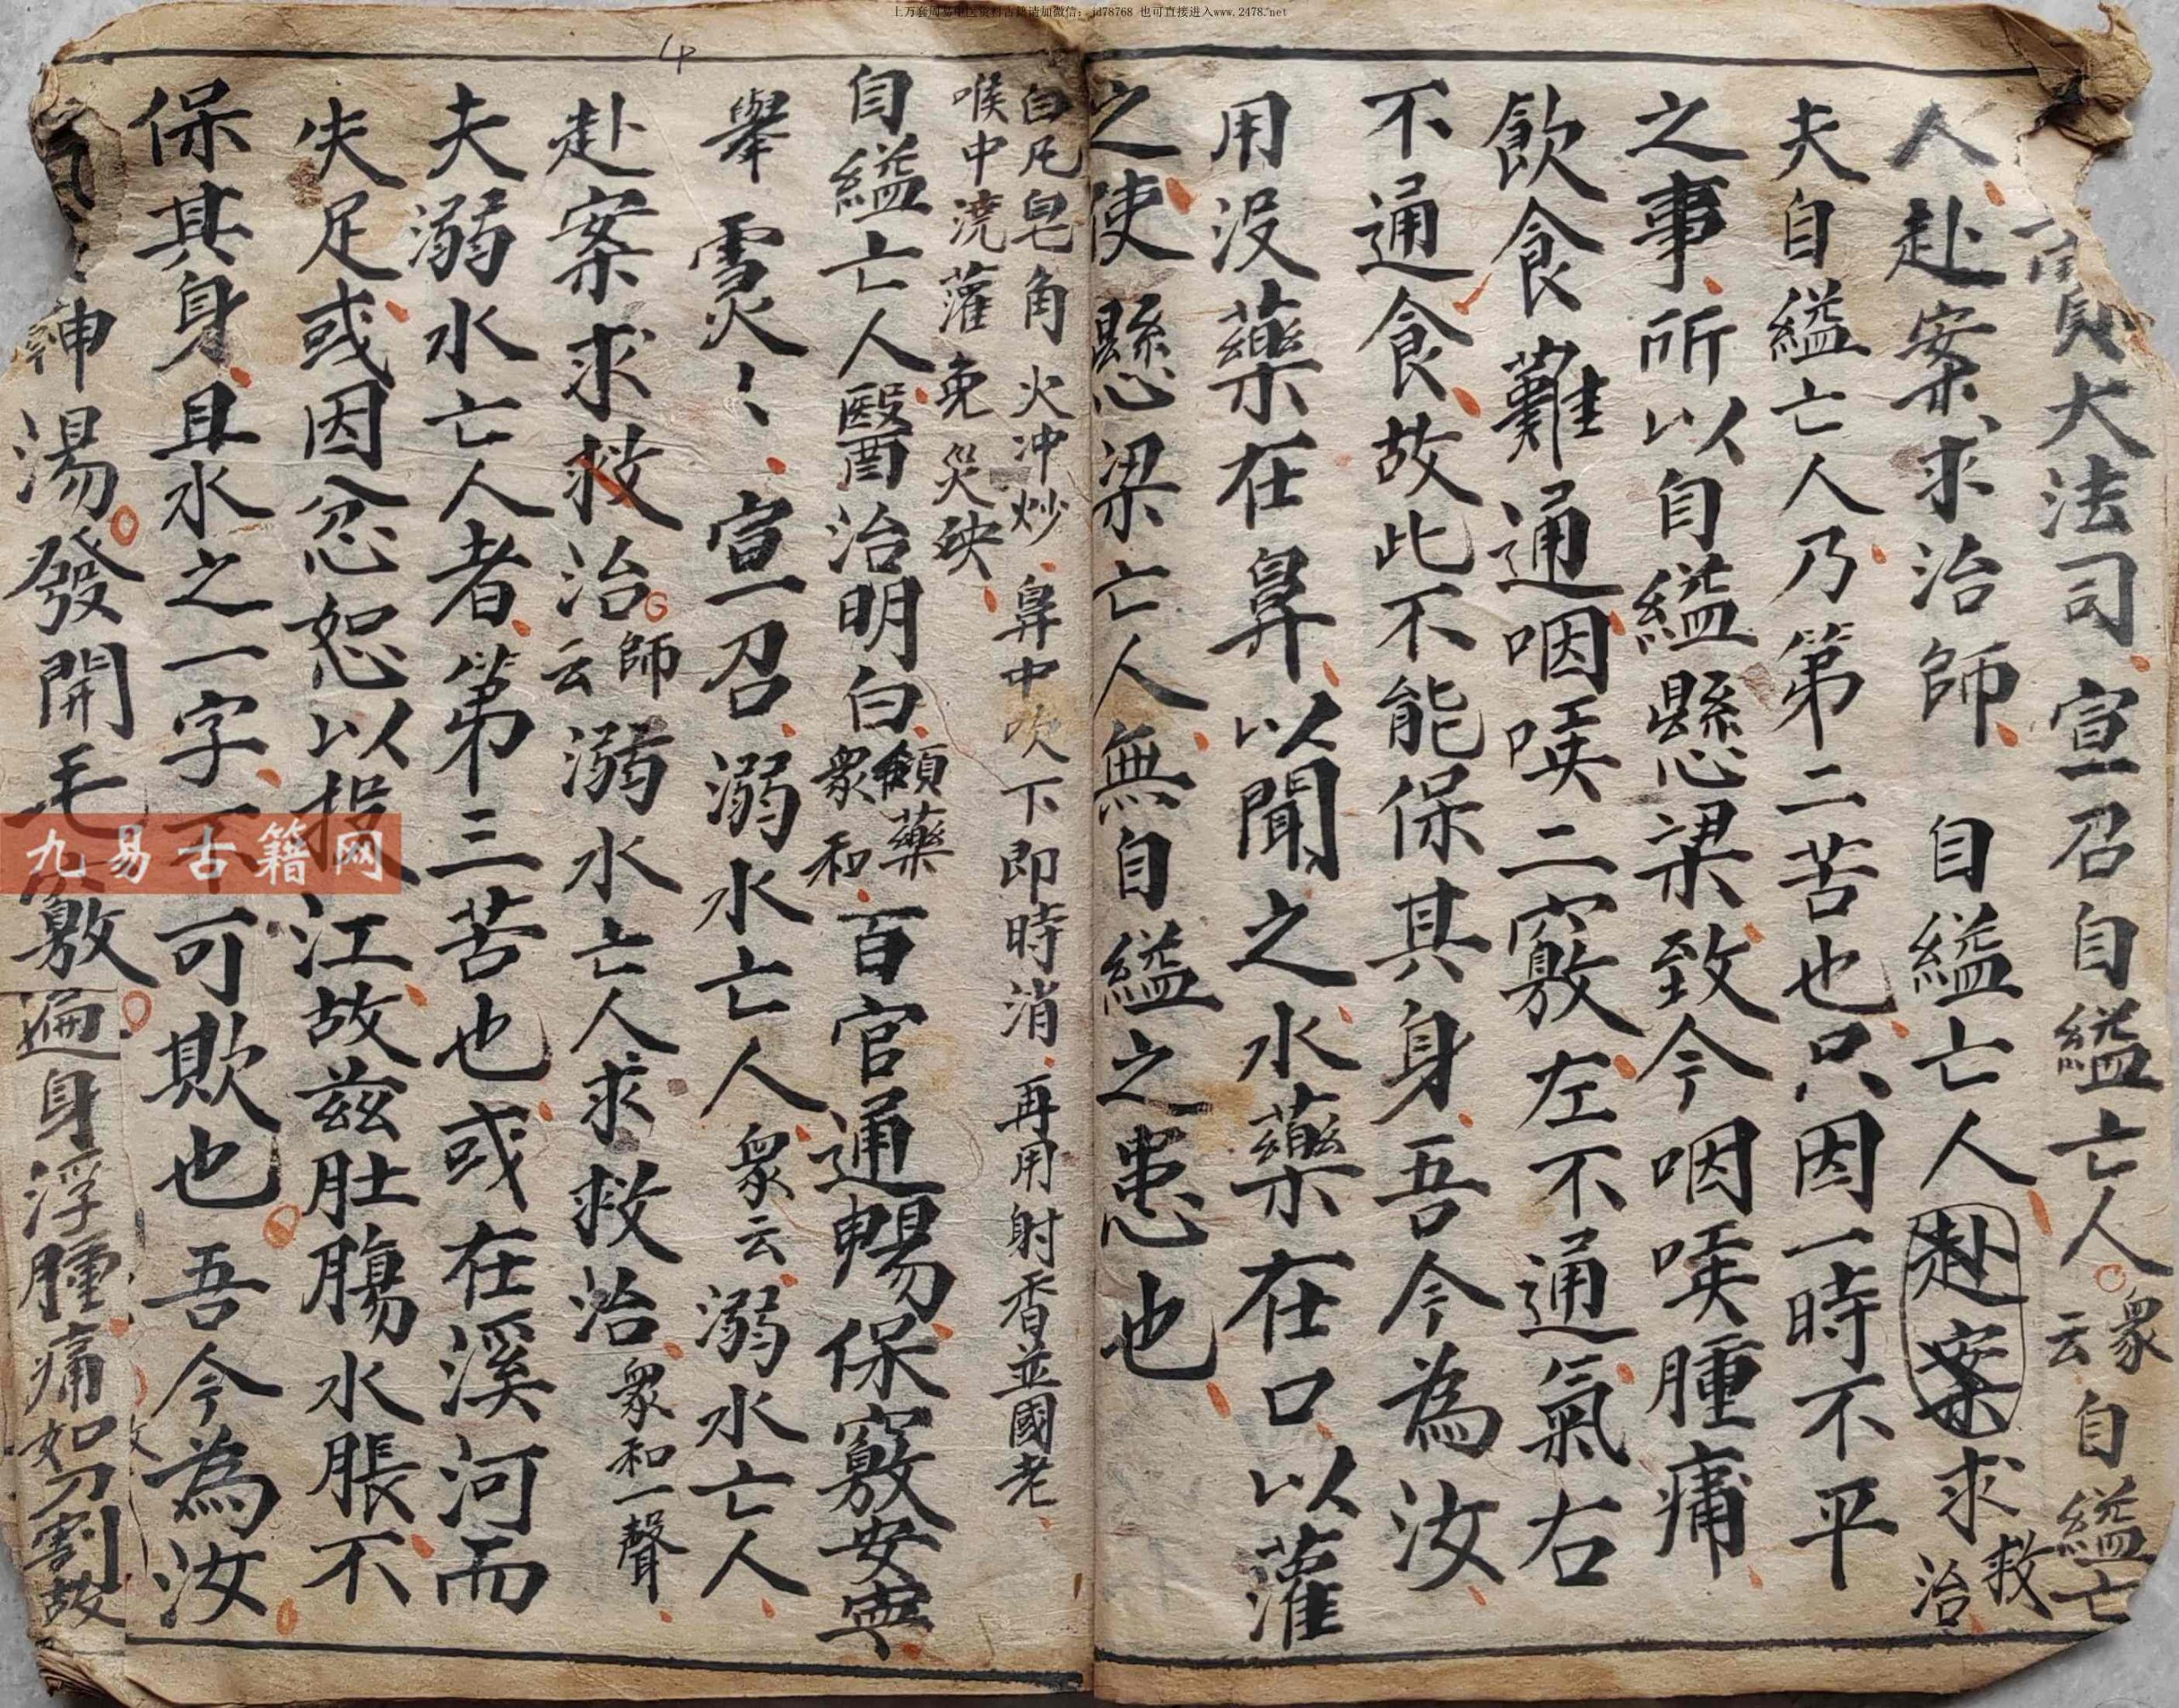 上万套周易中医资料古籍请加微信: jd78768 也可直接进入www.2478.net
大法司宣召自縊亡人衆云自縊亡
人赴案求治師自縊亡人赴案求救治
夫自縊亡人乃第二苦也只因一時不平
之事所以自縊懸梁致今咽㗋腫痛
飲食難通咽㗋二竅左不通氣右
不通食故此不能保其身吾今為汝
用没藥在鼻以聞之水藥在口以灌
之使懸梁亡人無自縊之患也
皂角火冲炒鼻中吹下即時消再用射香並國老
喉中澆灌免災殃
自縊亡人醫治明白領藥衆和百官通暢保竅安寧
舉靈〻宣召溺水亡人衆云溺水亡人
赴案求救治師云溺水亡人求救治衆和一聲
夫溺水亡人者第三苦也或在溪河而
失足或因忿恕以投江故兹肚腸水脹不
保其身且水之一字不可欺也吾今為汝
神湯發開毛竅遍身浮腫痛如刀割故
九易古籍网